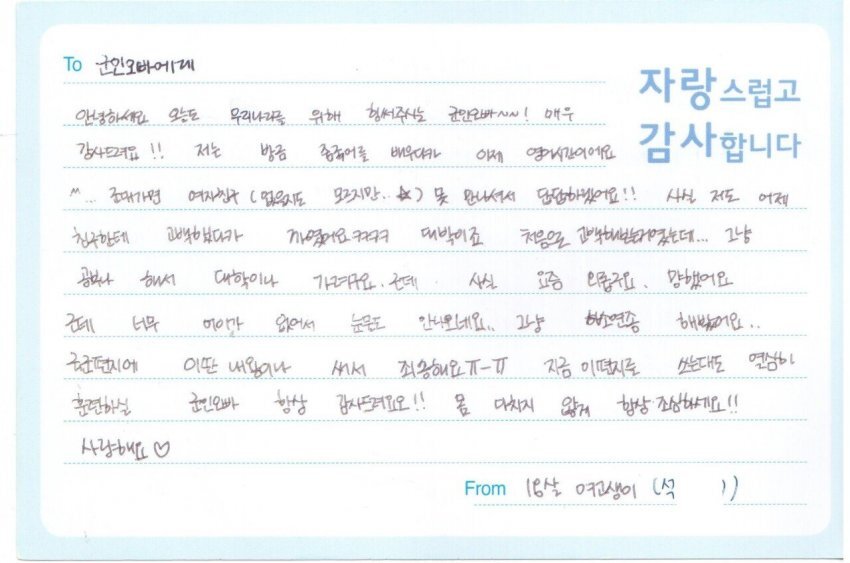 To 군인오빠에게
자랑스럽고
감사합니다
안녕하세요 오늘도 우리나라를 위해 힘써주시는 군인오빠~~! 매우
감사드려요!! 저는 방금 중국어를 배우다가 이제 영어시간이에요
^^... 군대가면 여자친구 (없을지도 모르지만..☆) 못 만나셔서 답답하겠어요!! 사실 저도 어제
친구한테 고백했다가 까였어요ㅋㅋㅋㅋ 대박이죠 처음으로 고백해본거였는데... 그냥
공부나 해서 대학이나 가려구요. 근데 사실 요즘 외롭구요. 망했어요
근데 너무 어이가 없어서 눈물도 안나오네요.. 그냥 하소연좀 해봤어요..
국군편지에 이딴 내용이나 써서 죄송해요ㅠ-ㅠ 지금 이편지를 쓰는대도 열심히
훈련하실 군인오빠 항상 감사드려요오!! 몸 다치지 않게 항상 조심하세요!!
사랑해요♡
From 18살 여고생이 (석 )